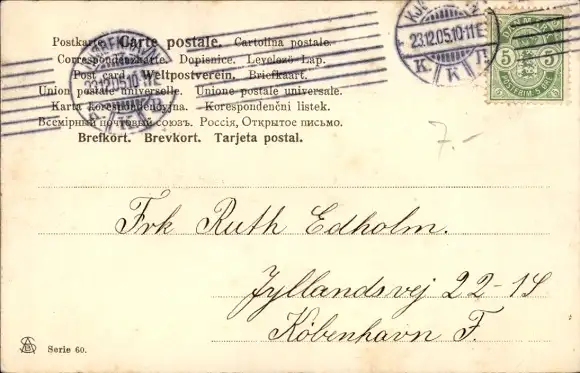 Postkarte. Carte postale. Cartolina postale.
Correspondenzkarte. Dopisnice. Levelező Lap.
Post card. Weltpostverein. Briefkaart.
Union postale universelle. Unione postale universale.
Karta korespondencyjna. - Korespondenční listek.
Всемірный почтовый союзъ. Россія, Открытое письмо.
Brefkort. Brevkort. Tarjeta postal.
23.12.05.10-11E
K. K
23.12.05.10-11E
K
DANMARK
5 5
POSTFRIM. 5 ØRE
7.-
Frk Ruth Edholm.
Jyllandsvej 22-1S
København F.
Serie 60.